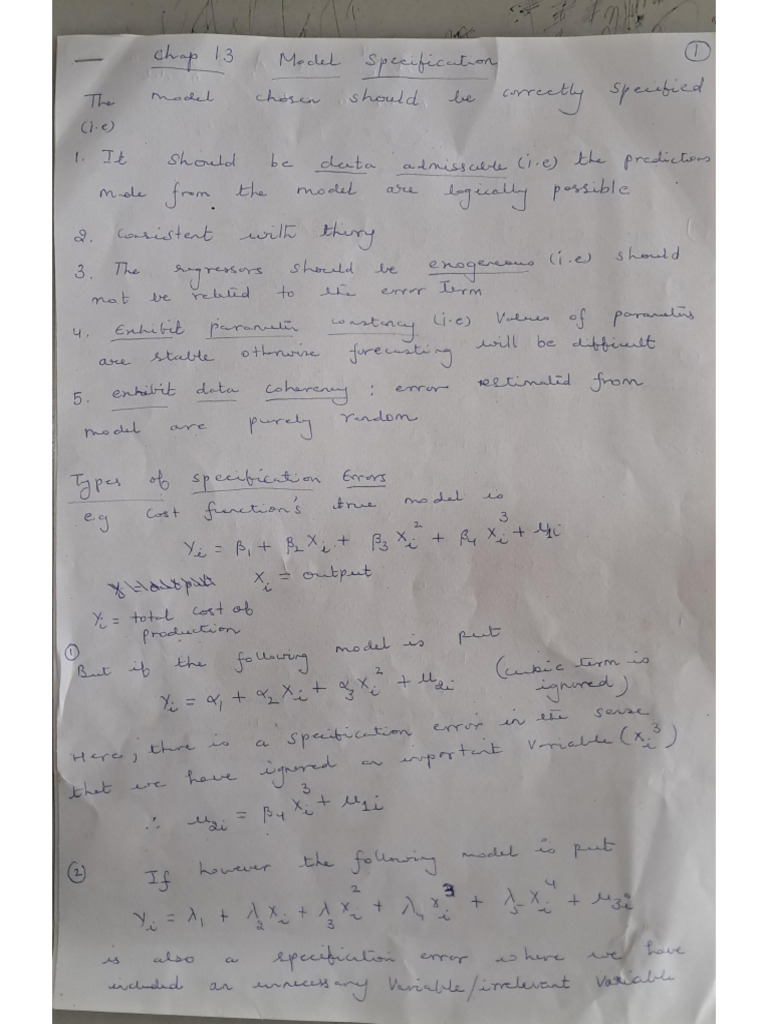 Chap 13 Model Specification ①
The model chosen should be correctly specified
(i.e)
1. It should be data admissable (i.e) the predictions
made from the model are logically possible
2. Consistent with theory
3. The regressors should be exogeneous (i.e) should
not be related to the error term
4. Exhibit parameter constancy (i.e) Values of parameters
are stable otherwise forecasting will be difficult
5. exhibit data coherency : error estimated from
model are purely random
Types of specification Errors
e.g cost function's true model is
Yi = β1 + β2 Xi + β3 Xi² + β4 Xi³ + u1i
Xi = output
Yi = total cost of
production
① But if the following model is put
Yi = α1 + α2 Xi + α3 Xi² + u2i (cubic term is
ignored)
Here, there is a specification error in the sense
that we have ignored an important variable (Xi³)
∴ u2i = β4 Xi³ + u1i
② If however the following model is put
Yi = λ1 + λ2 Xi + λ3 Xi² + λ4 Xi³ + λ5 Xi⁴ + u3i
is also a specification error where we have
included an unnecessary variable/irrelevant variable